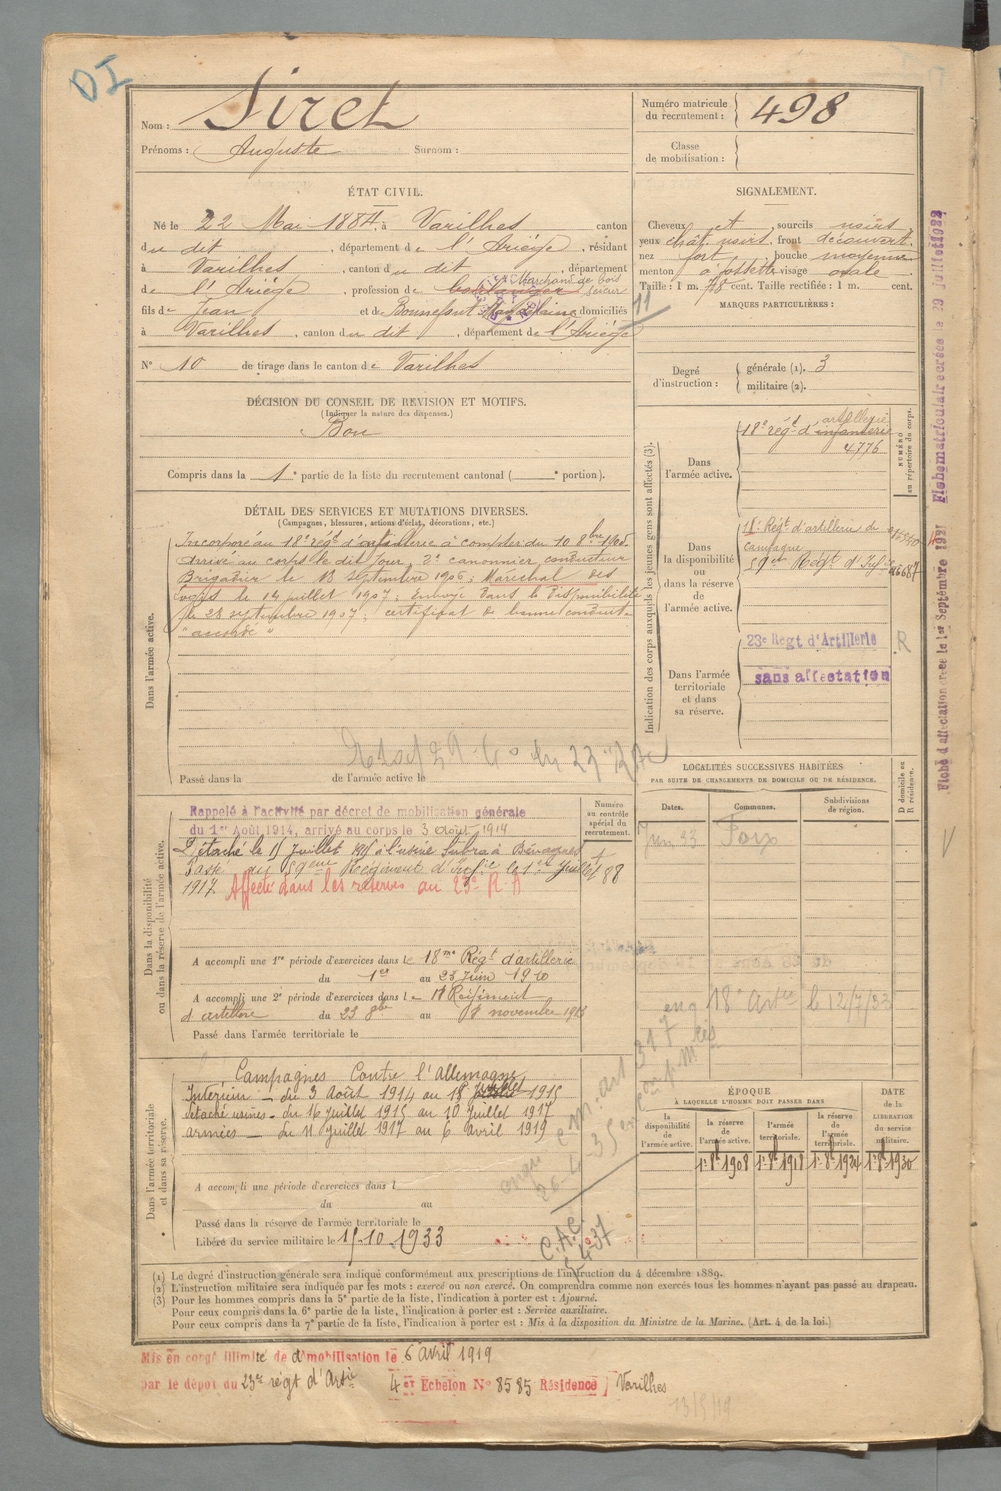 DI
Nom : Siret
Prénoms : Auguste Surnom :
Numéro matricule du recrutement : 498
Classe de mobilisation :
ÉTAT CIVIL.
Né le 22 Mai 1884, à Varilhes canton
du dit, département de l'Ariège, résidant
à Varilhes, canton du dit, département
de l'Ariège, profession de boulanger Marchand de bois scieur
fils de Jean et de Bonnefont Magdelaine domiciliés
à Varilhes, canton du dit, département de l'Ariège
11
N° 10 de tirage dans le canton de Varilhes
SIGNALEMENT.
Cheveux et sourcils noirs
yeux chât. noirs, front découvert.
nez fort, bouche moyenne
menton à fossette visage ovale
Taille : 1 m. 78 cent. Taille rectifiée : 1 m. cent.
MARQUES PARTICULIÈRES :
Degré d'instruction : générale (1). 3
militaire (2).
DÉCISION DU CONSEIL DE REVISION ET MOTIFS.
(Indiquer la nature des dispenses.)
Bon
Compris dans la 1e partie de la liste du recrutement cantonal ( e portion).
DÉTAIL DES SERVICES ET MUTATIONS DIVERSES.
(Campagnes, blessures, actions d'éclat, décorations, etc.)
Dans l'armée active.
Incorporé au 18e régt d'artillerie à compter du 10 8bre 1905
Arrivé au corps le dit jour, 2e canonnier conducteur
Brigadier le 18 septembre 1906; Maréchal des
logis le 14 juillet 1907; Envoyé dans la disponibilité
le 28 septembre 1907; certificat de bonne conduite
"accordé"
23e
Passé dans la de l'armée active le
Indication des corps auxquels les jeunes gens sont affectés (3).
NUMÉRO au répertoire du corps.
Dans l'armée active.
18e régt d'infanterie artillerie
4776
Dans la disponibilité ou dans la réserve de l'armée active.
18e Régt d'artillerie de
campagne
59eme Régt d'Infie
Dans l'armée territoriale et dans sa réserve.
23e Régt d'Artillerie R
sans affectation
Fiche d'affectation créée le 1er Septembre 1921
Fiche matriculaire créée le 19 juillet 1922
Dans la disponibilité ou dans la réserve de l'armée active.
Rappelé à l'activité par décret de mobilisation générale
du 1er Août 1914, arrivé au corps le 3 août 1914
Détaché le 15 juillet 1915 à l'usine Subra à
Passé au 59eme Régiment d'Infie le 1er Juillet
1917. Affecté dans les réserves au 23e R.A
Numéro au contrôle spécial du recrutement.
88
A accompli une 1re période d'exercices dans le 18me Régt d'artillerie
du 1er au 23 Juin 1910
A accompli une 2e période d'exercices dans le 18 Régiment
d'artillerie du 23 8bre au 8 novembre 1913
Passé dans l'armée territoriale le
LOCALITÉS SUCCESSIVES HABITÉES
PAR SUITE DE CHANGEMENTS DE DOMICILE OU DE RÉSIDENCE.
Dates. Communes. Subdivisions de région. D domicile ou R résidence.
23 Foix
18e Artie le 12/7/33
Dans l'armée territoriale et dans sa réserve.
Campagnes Contre l'Allemagne
Intérieur — du 3 Août 1914 au 15 juillet 1915
détaché usines - du 16 juillet 1915 au 10 juillet 1917
armées — du 11 juillet 1917 au 6 avril 1919
A accompli une période d'exercices dans l
du au
Passé dans la réserve de l'armée territoriale le
Libéré du service militaire le 15-10-1933
ÉPOQUE
À LAQUELLE L'HOMME DOIT PASSER DANS
la disponibilité de l'armée active.
la réserve de l'armée active.
l'armée territoriale.
la réserve de l'armée territoriale.
DATE de la LIBÉRATION du service militaire.
1er 8bre 1908 1er 8bre 1918 1er 8bre 1924 1er 8bre 1930
(1) Le degré d'instruction générale sera indiqué conformément aux prescriptions de l'instruction du 4 décembre 1889.
(2) L'instruction militaire sera indiquée par les mots : exercé ou non exercé. On comprendra comme non exercés tous les hommes n'ayant pas passé au drapeau.
(3) Pour les hommes compris dans la 5e partie de la liste, l'indication à porter est : Ajourné.
Pour ceux compris dans la 6e partie de la liste, l'indication à porter est : Service auxiliaire.
Pour ceux compris dans la 7e partie de la liste, l'indication à porter est : Mis à la disposition du Ministre de la Marine. (Art. 4 de la loi.)
Mis en congé illimité de démobilisation le 6 avril 1919
par le dépôt du 23e régt d'Artie 4e Echelon N° 8585 Résidence Varilhes
13/5/19